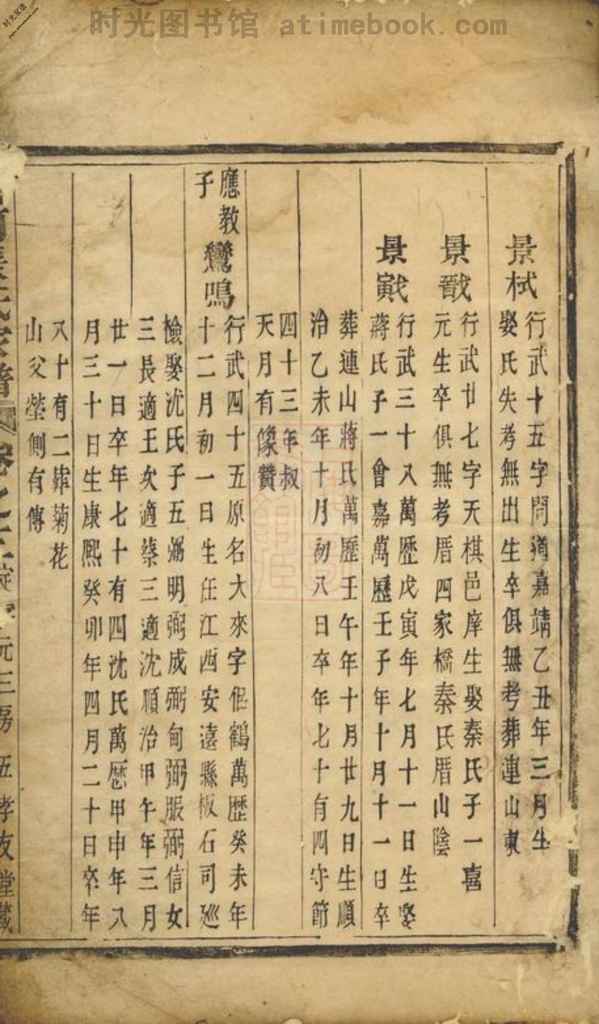 时光图书馆 atimebook.com
景栻
行武十五字問道嘉靖乙丑年三月生
娶氏失考無出生卒俱無考葬連山東
景戩
行武廿七字天棋邑庠生娶秦氏子一嘉
元生卒俱無考厝四家橋秦氏厝山陰
景寅戈
行武三十又萬歷戊寅年七月十一日生娶
蔣氏子一會嘉萬曆壬子年十月十一日卒
葬連山蔣氏萬歷壬午年十月廿九日生順
治乙未年十月初八日卒年七十有四守節
四十三年叔
天月有像贊
應教子
鸞鳴
行武四十五原名大來字侶鶴萬歷癸未年
十二月初一日生任江西安遠縣板石司廵
檢娶沈氏子五弼明弼成弼甸弼服弼信女
三長適王次適蔡三適沈順治甲午年三月
廿一日卒年七十有四沈氏萬歷甲申年又
月三十日生康熙癸卯年四月二十日卒年
又十有二葬菊花
山父塋側有傳
五 孝友堂藏